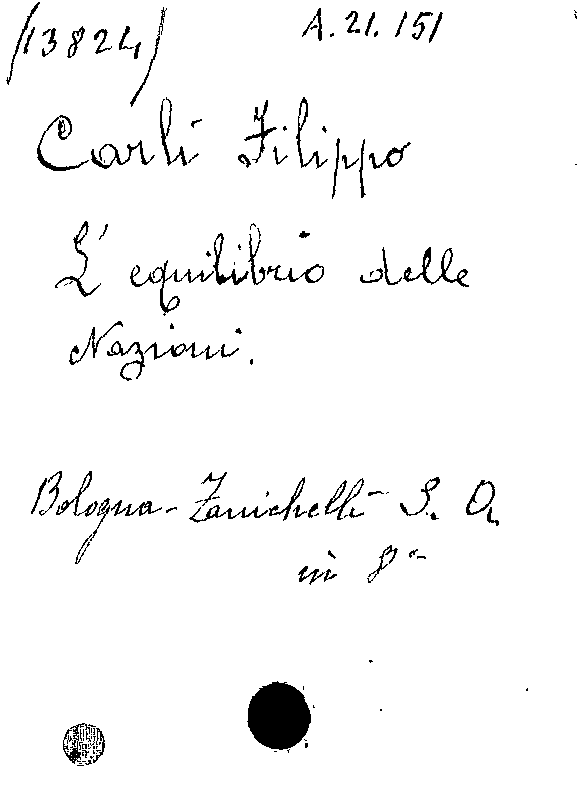 (13824)
A. 21. 151
Carli Filippo
L' equilibrio delle
Nazioni.
Bologna - Zanichelli - S. A.
in 8°